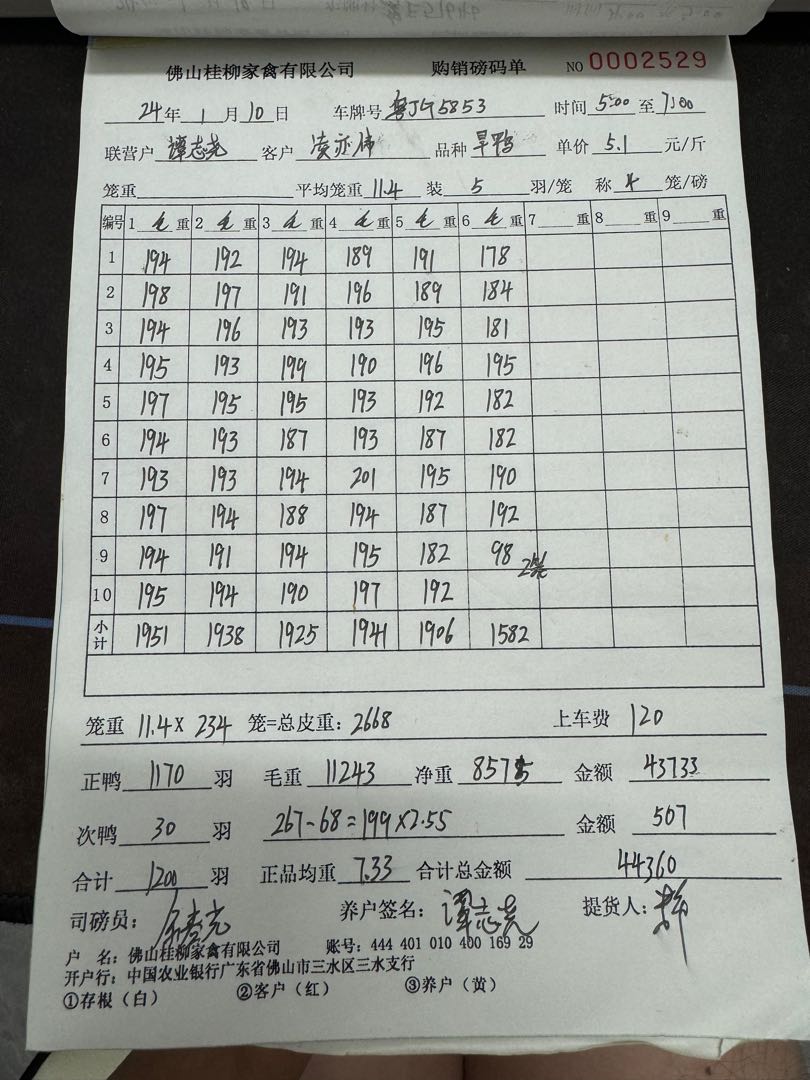 佛山桂柳家禽有限公司 购销磅码单 NO 0002529
24年 1月 10日 车牌号 粤JG5853 时间 5:00 至 7:00
联营户 谭志尧 客户 凌亦伟 品种 旱鸭 单价 5.1 元/斤
笼重 平均笼重 11.4 装 5 羽/笼 称 4 笼/磅
编号 1 毛 重 2 毛 重 3 毛 重 4 毛 重 5 毛 重 6 毛 重 7 重 8 重 9 重
1 194 192 194 189 191 178
2 198 197 191 196 189 184
3 194 196 193 193 195 181
4 195 193 199 190 196 195
5 197 195 195 193 192 182
6 194 193 187 193 187 182
7 193 193 194 201 195 190
8 197 194 188 194 187 192
9 194 191 194 195 182 98 2笼
10 195 194 190 197 192
小计 1951 1938 1925 1941 1906 1582
笼重 11.4 X 234 笼=总皮重: 2668 上车费 120
正鸭 1170 羽 毛重 11243 净重 8575 金额 43733
次鸭 30 羽 267-68=199X2.55 金额 507
合计 1200 羽 正品均重 7.33 合计总金额 44360
司磅员: 养户签名: 谭志尧 提货人:
户 名: 佛山桂柳家禽有限公司 账号: 444 401 010 400 169 29
开户行: 中国农业银行广东省佛山市三水区三水支行
①存根(白) ②客户(红) ③养户(黄)